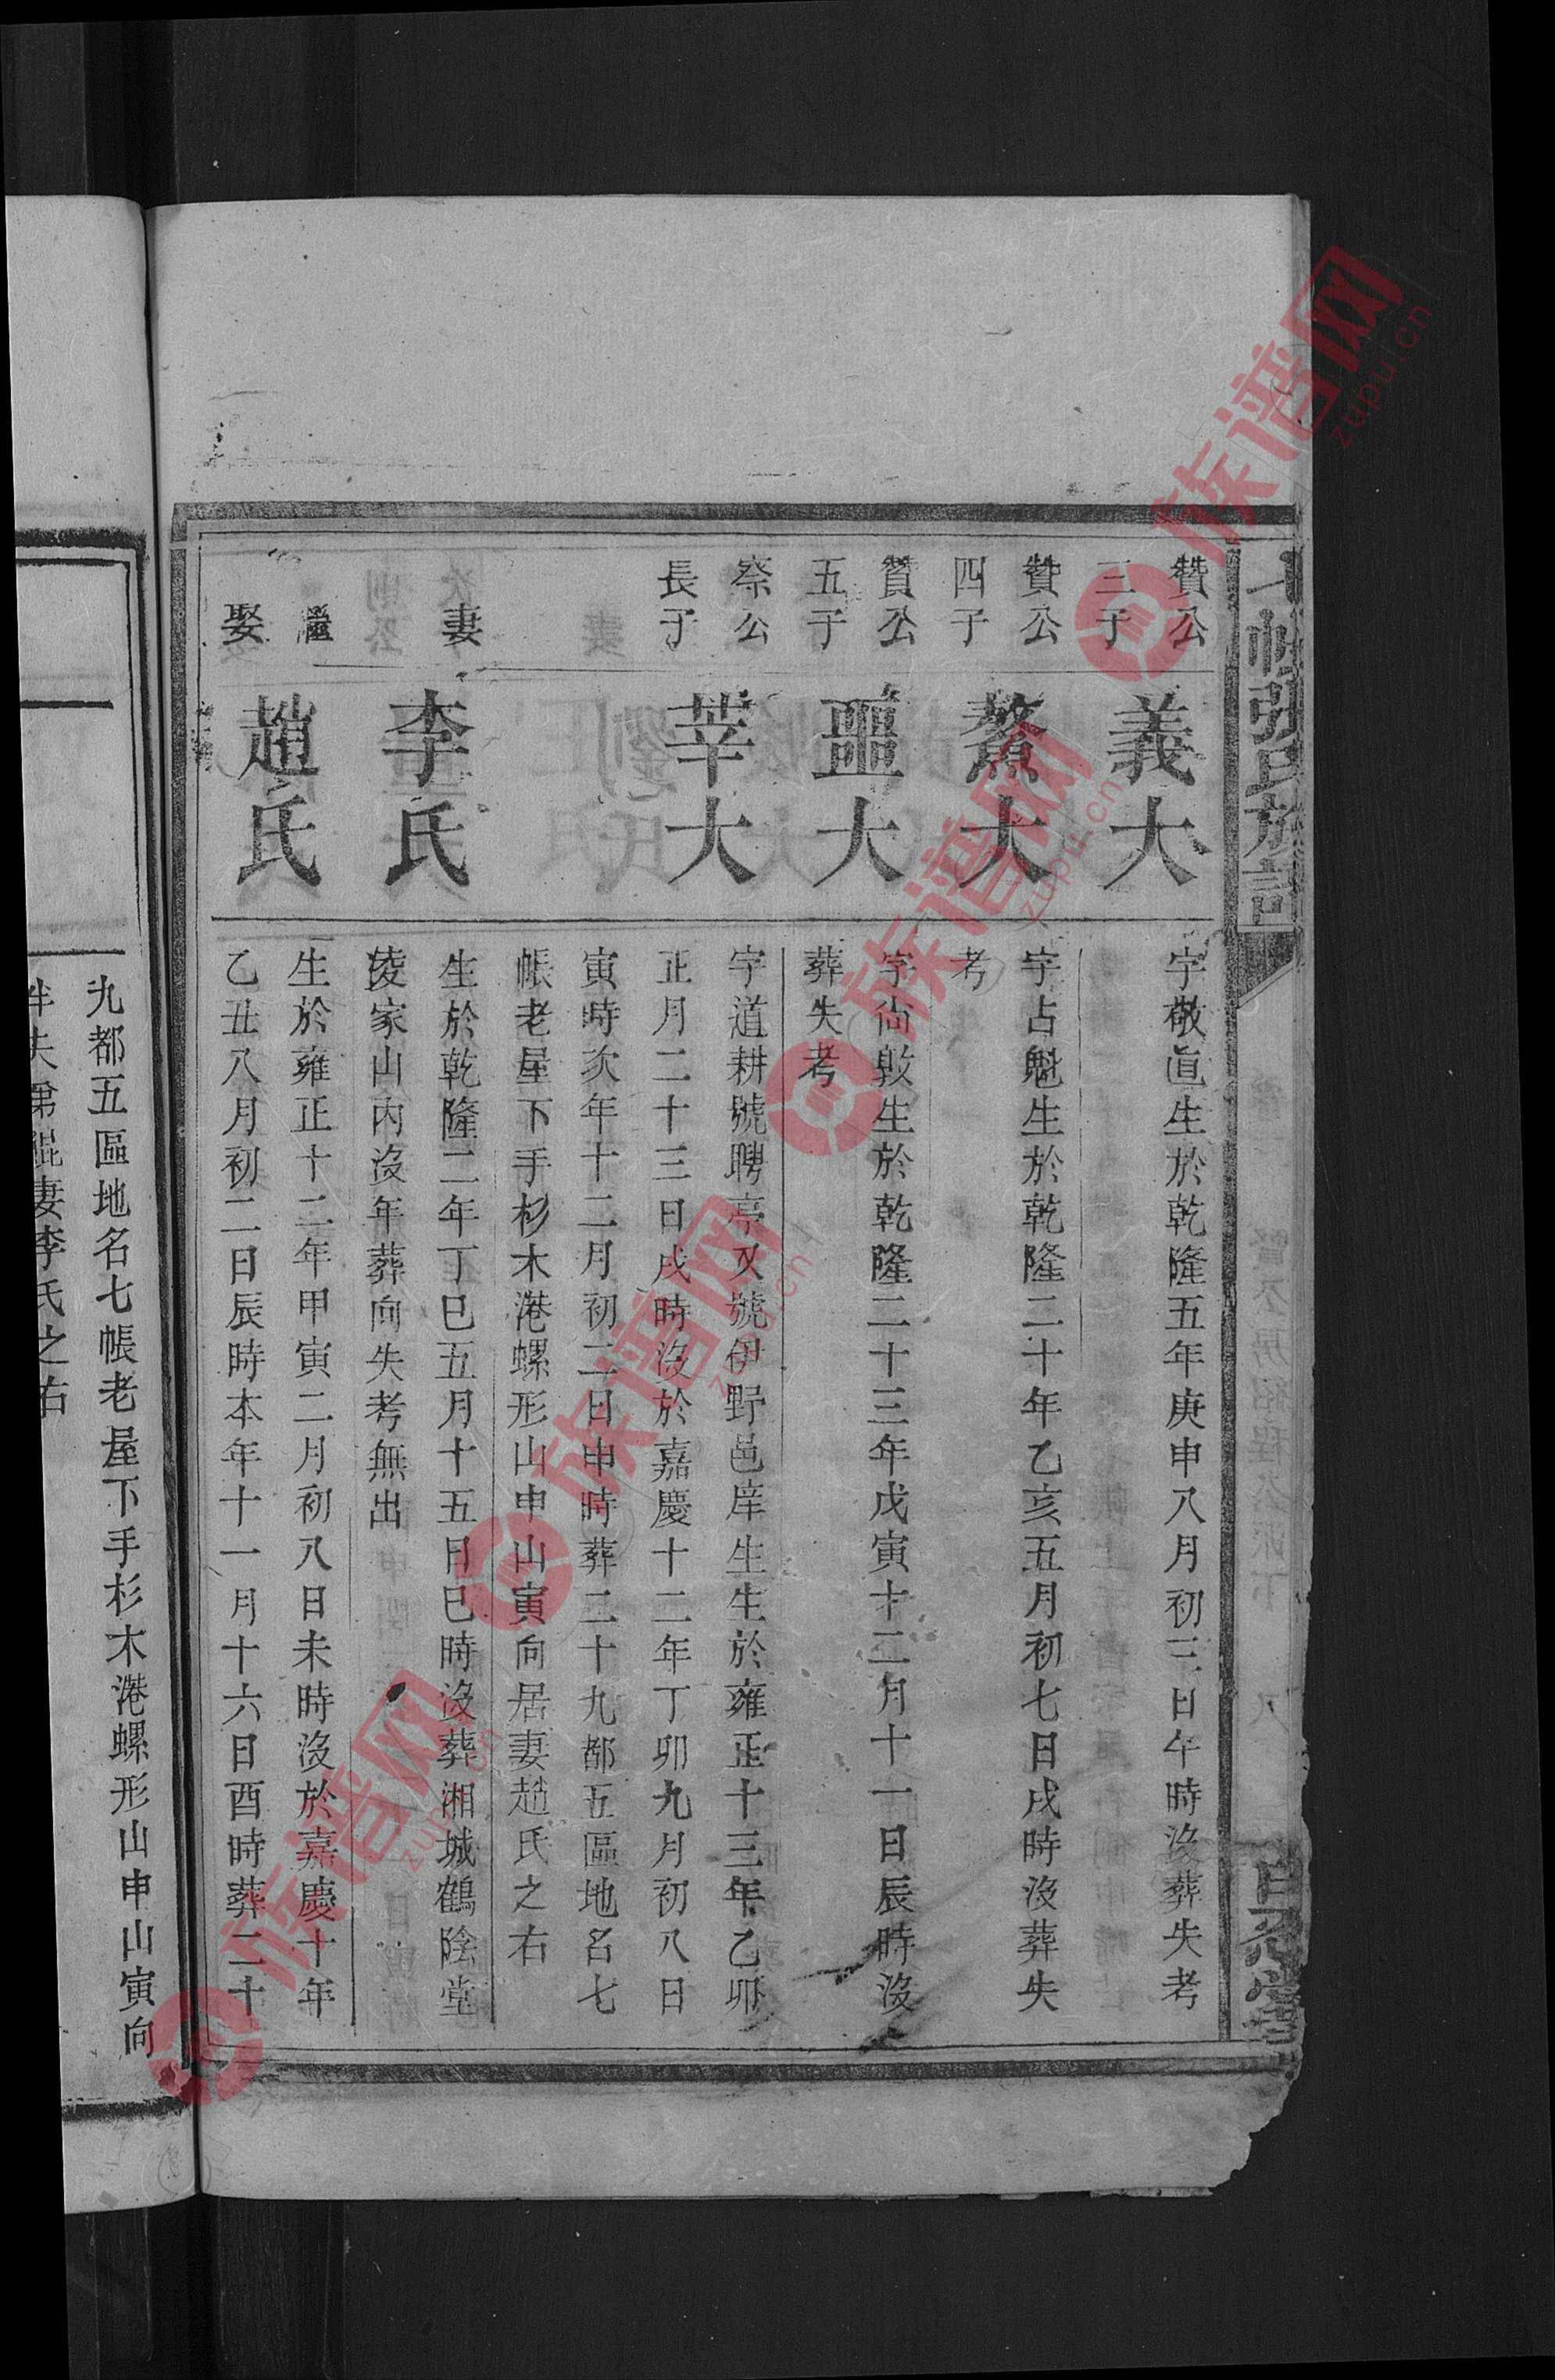 七帳張氏族譜
贊公
三子
義大
字敬直生於乾隆五年庚申八月初三日午時沒葬失考
贊公
四子
鰲大
字占魁生於乾隆二十年乙亥五月初七日戌時沒葬失
考
贊公
五子
大
字尙敦生於乾隆二十三年戊寅十二月十一日辰時沒
葬失考
祭公
長子
莘大
字道耕號聘亭又號伊野邑庠生生於雍正十三年乙卯
正月二十三日戌時沒於嘉慶十二年丁卯九月初八日
寅時次年十二月初二日申時葬二十九都五區地名七
帳老屋下手杉木港螺形山申山寅向居妻趙氏之右
妻
李氏
生於乾隆二年丁巳五月十五日巳時沒葬湘城鶴陰堂
陵家山內沒年葬向失考無出
繼
娶
趙氏
生於雍正十二年甲寅二月初八日未時沒於嘉慶十年
乙丑八月初二日辰時本年十一月十六日酉時葬二十
九都五區地名七帳老屋下手杉木港螺形山申山寅向
妻李氏之右
族谱网
zupu.cn
族谱网
zupu.cn
族谱网
zupu.cn
族谱网
zupu.cn